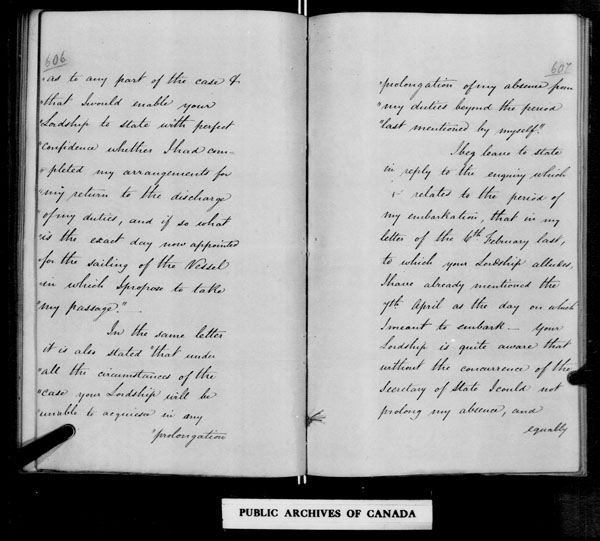 606
"as to any part of the case &
"that I would enable your
"Lordship to state with perfect
"confidence whether I had com-
"pleted my arrangements for
"my return to the discharge
"of my duties, and if so what
"is the exact day now appointed
"for the sailing of the Vessel
"in which I propose to take
"my passage."—
In the same letter
it is also stated "that under
"all the circumstances of the
"case your Lordship will be
"unable to acquiesce in any
"prolongation
607
"prolongation of my absence from
"my duties beyond the period
"last mentioned by myself."
I beg leave to state
in reply to the enquiry which
related to the period of
my embarkation, that in my
letter of the 6th February last,
to which your Lordship alludes,
I have already mentioned the
7th April as the day on which
I meant to embark — Your
Lordship is quite aware that
without the concurrence of the
Secretary of State I could not
prolong my absence, and
equally
PUBLIC ARCHIVES OF CANADA